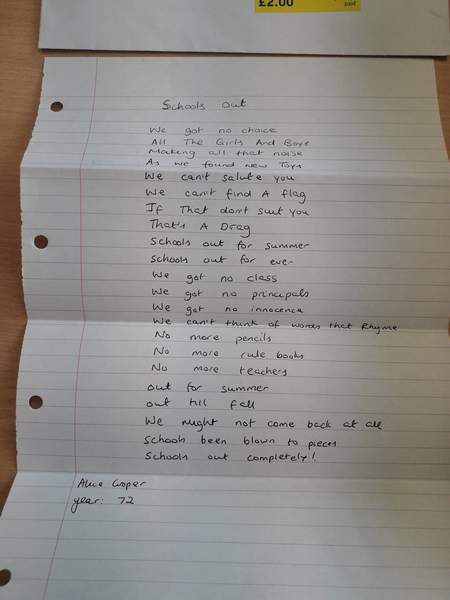 £2.00
paid
Schools out
We got no choice
All The Girls And Boys
Making all that noise
As we found new Toys
We can't salute you
We can't find A flag
If That dont suit you
That's A Drag
Schools out for summer
Schools out for ever
We got no class
We got no principals
We got no innocence
We can't think of words that Rhyme
No more pencils
No more rule books
No more teachers
out for summer
out till fall
We might not come back at all
Schools been blown to pieces
Schools out completely!
Alice Cooper
year: 72